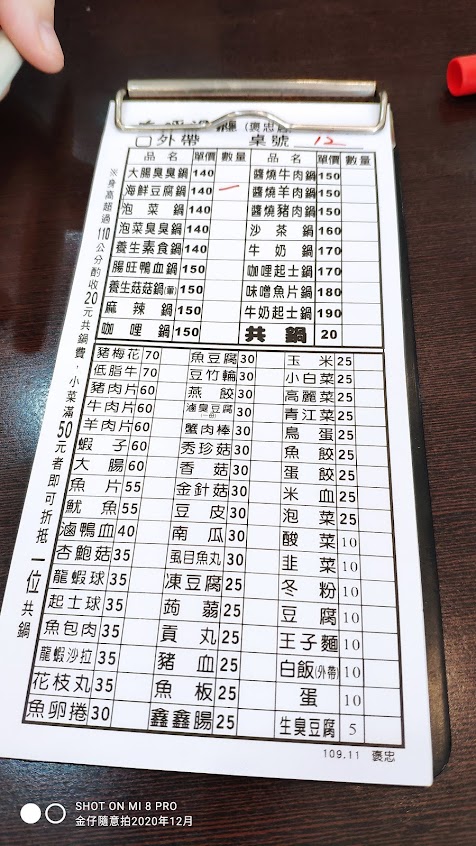 (褒忠店)
□外帶 桌號 12
品名 單價 數量 品名 單價 數量
大腸臭臭鍋 140 醬燒牛肉鍋 150
海鮮豆腐鍋 140 一 醬燒羊肉鍋 150
泡菜鍋 140 醬燒豬肉鍋 150
泡菜臭臭鍋 140 沙茶鍋 160
養生素食鍋 140 牛奶鍋 170
腸旺鴨血鍋 150 咖哩起士鍋 170
養生菇菇鍋(葷) 150 味噌魚片鍋 180
麻辣鍋 150 牛奶起士鍋 190
咖哩鍋 150 共鍋 20
豬梅花 70 魚豆腐 30 玉米 25
低脂牛 70 豆竹輪 30 小白菜 25
豬肉片 60 燕餃 30 高麗菜 25
牛肉片 60 滷臭豆腐(一份) 30 青江菜 25
羊肉片 60 蟹肉棒 30 鳥蛋 25
蝦子 60 秀珍菇 30 魚餃 25
大腸 60 香菇 30 蛋餃 25
魚片 55 金針菇 30 米血 25
魷魚 55 豆皮 30 泡菜 25
滷鴨血 40 南瓜 30 酸菜 10
杏鮑菇 35 虱目魚丸 30 韭菜 10
龍蝦球 35 凍豆腐 25 冬粉 10
起士球 35 蒟蒻 25 豆腐 10
魚包肉 35 貢丸 25 王子麵 10
龍蝦沙拉 35 豬血 25 白飯(外帶) 10
花枝丸 35 魚板 25 蛋 10
魚卵捲 30 鑫鑫腸 25 生臭豆腐 5
※身高超過110公分酌收20元共鍋費,小菜滿50元者即可折抵一位共鍋
109.11 褒忠
SHOT ON MI 8 PRO
金仔隨意拍2020年12月